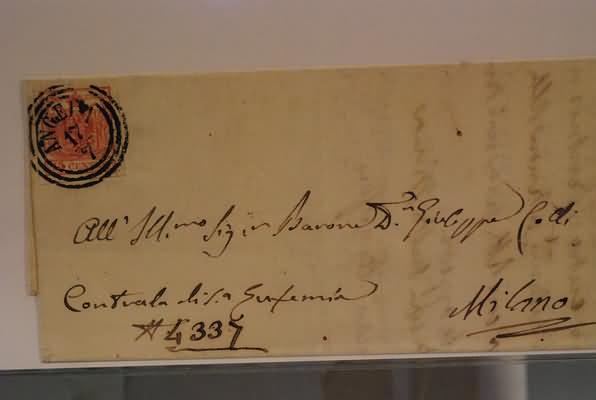 ANGERA
17
All' Ill.mo Sig.r Barone D.n Giuseppe Colli
Contrada di S.a Eufemia
Milano
# 4337